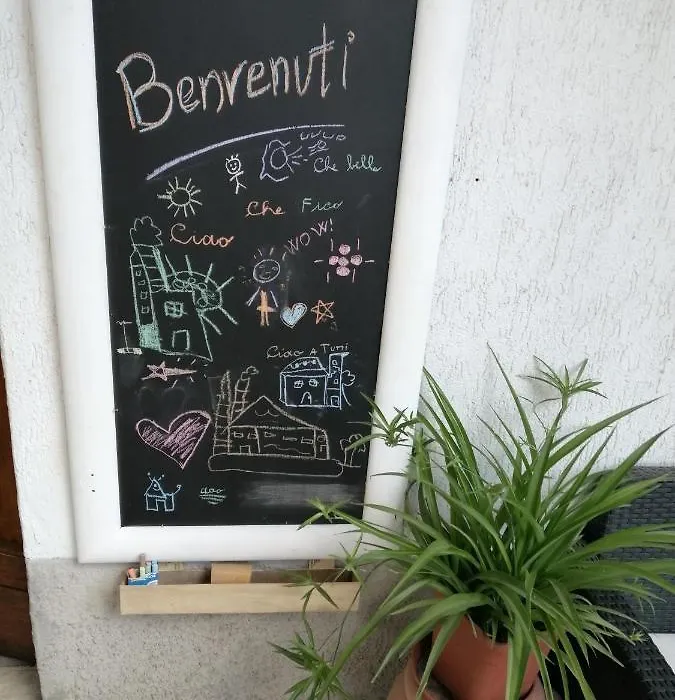 Benvenuti
Che bello
Che Fico
Ciao
WOW!
Ciao A Tutti
ciao